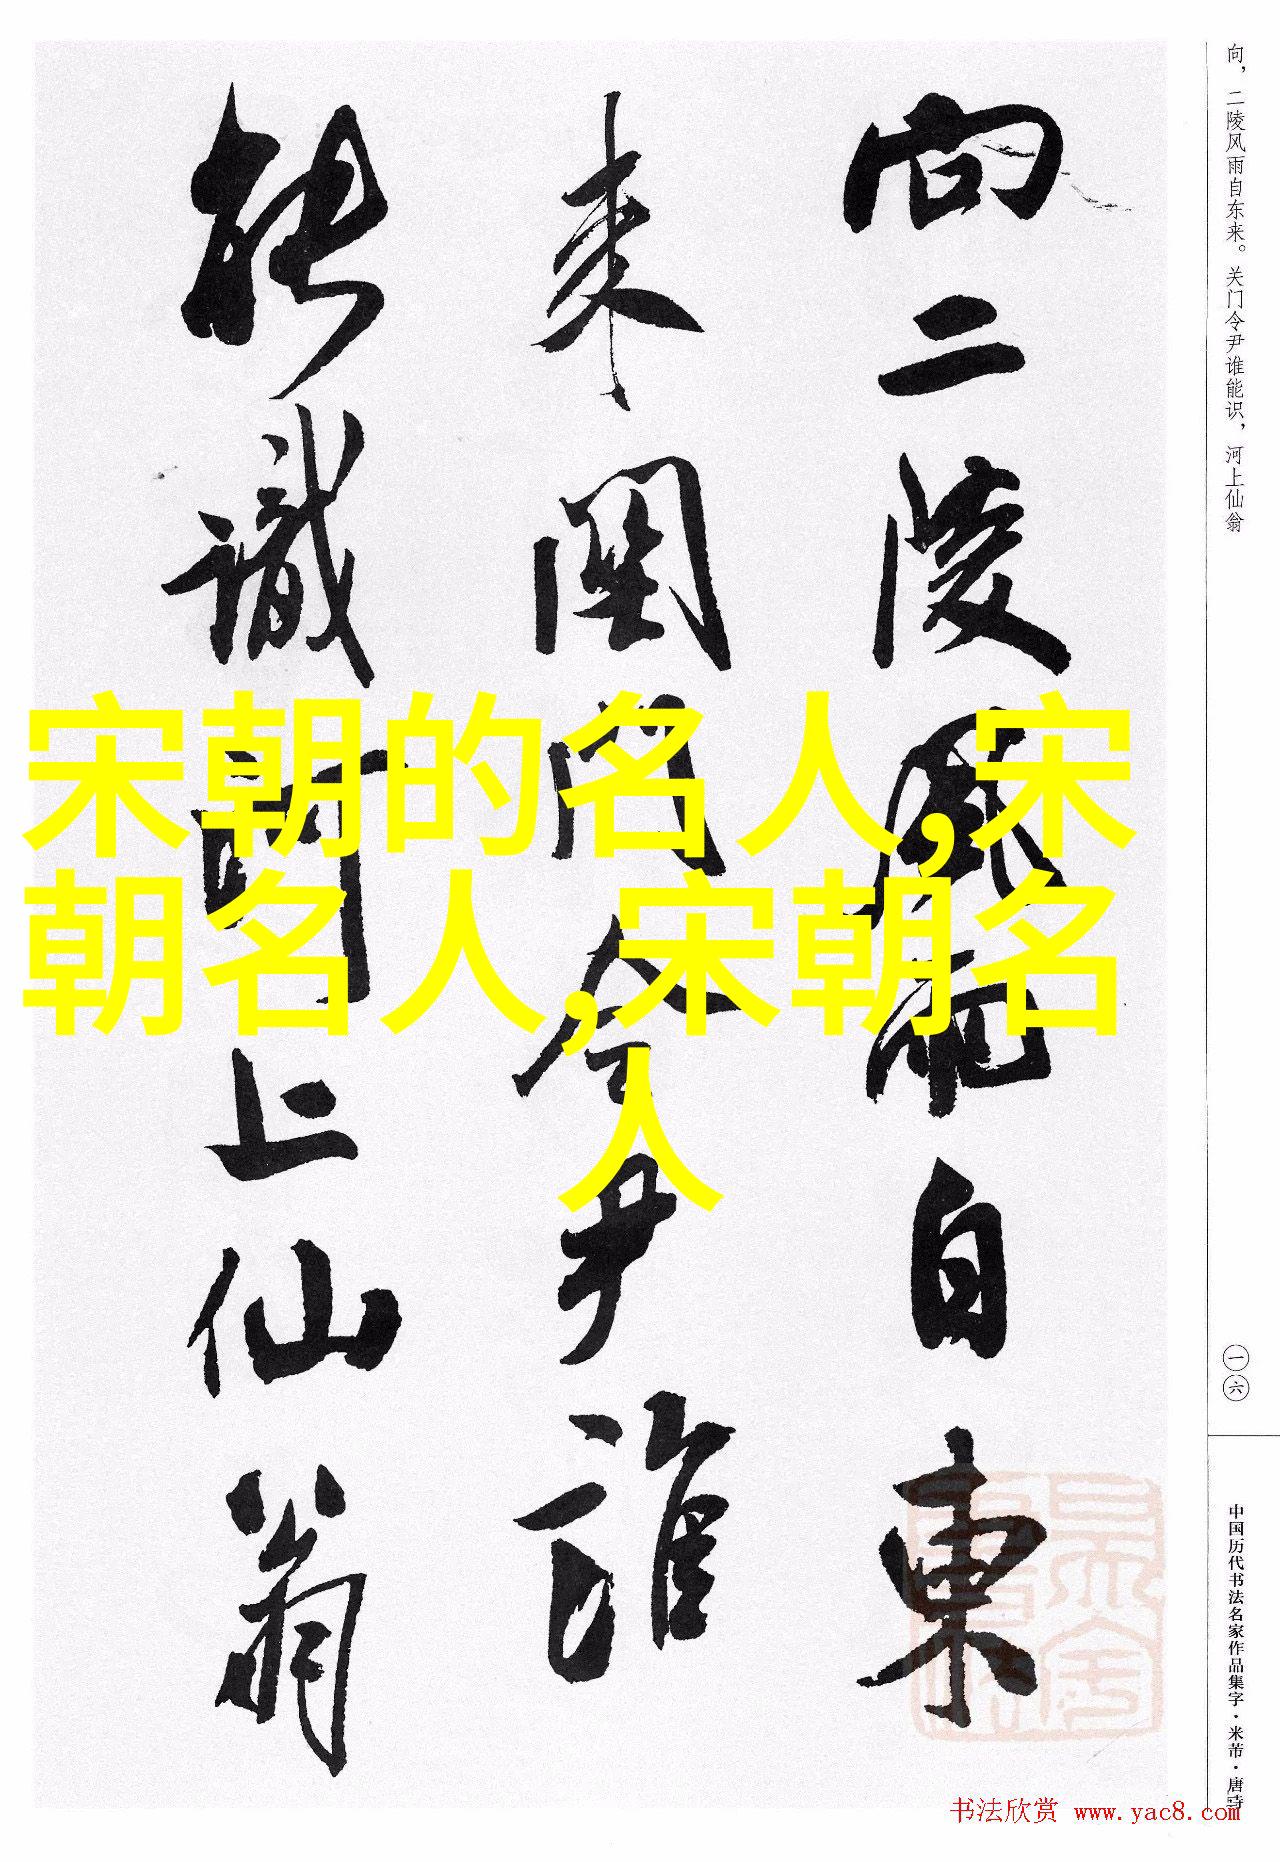 向二陵风雨自东
来关门令尹谁
能识河上仙翁
向，二陵风雨自东来。关门令尹谁能识，河上仙翁
一六
中国历代书法名家作品集字·米芾·唐诗
宋朝的名人,宋
朝名人,宋朝名
人
书法欣赏 www.yac8.com